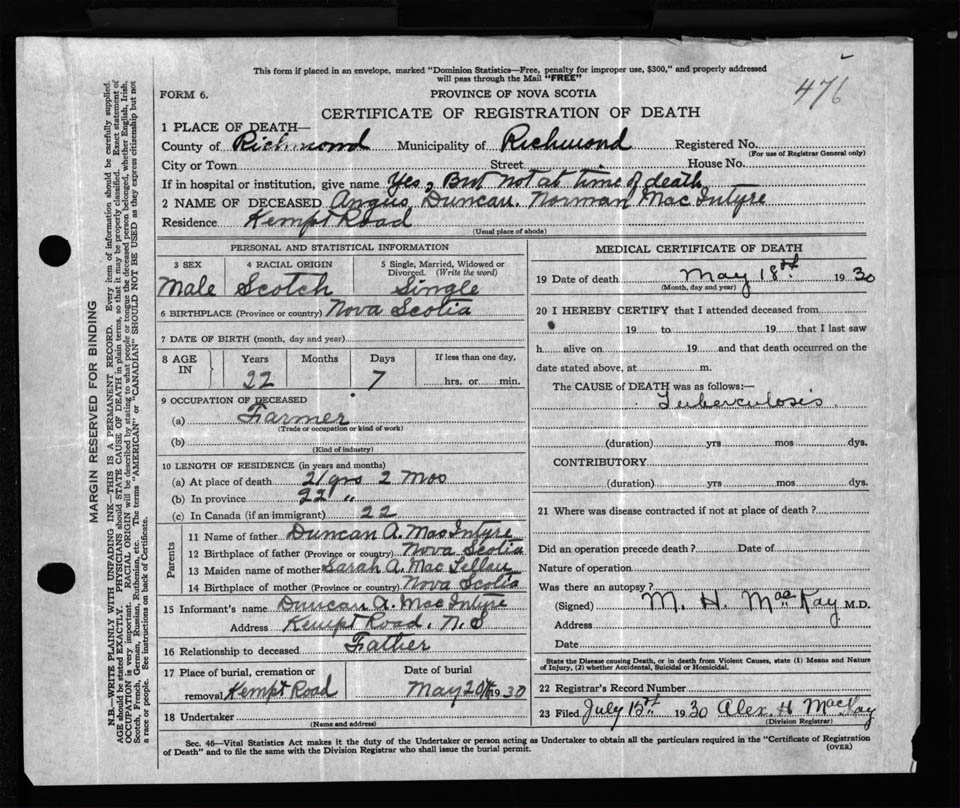 476
This form if placed in an envelope, marked "Dominion Statistics—Free, penalty for improper use, $300," and properly addressed
will pass through the Mail "FREE"
FORM 6.
PROVINCE OF NOVA SCOTIA
CERTIFICATE OF REGISTRATION OF DEATH
1 PLACE OF DEATH—
County of Richmond Municipality of Richmond Registered No.
(For use of Registrar General only)
City or Town Street House No.
If in hospital or institution, give name Yes, But not at time of death
2 NAME OF DECEASED Angus Duncan Norman MacIntyre
Residence Kempt Road
(Usual place of abode)
PERSONAL AND STATISTICAL INFORMATION
3 SEX 4 RACIAL ORIGIN 5 Single, Married, Widowed or
Divorced. (Write the word)
Male Scotch Single
6 BIRTHPLACE (Province or country) Nova Scotia
7 DATE OF BIRTH (month, day and year)
8 AGE IN Years Months Days If less than one day,
22 7 hrs. or min.
9 OCCUPATION OF DECEASED
(a) Farmer
(Trade or occupation or kind of work)
(b)
(Kind of industry)
10 LENGTH OF RESIDENCE (in years and months)
(a) At place of death 21 yrs 2 Mos
(b) In province 22 "
(c) In Canada (if an immigrant) 22
Parents
11 Name of father Duncan A. MacIntyre
12 Birthplace of father (Province or country) Nova Scotia
13 Maiden name of mother Sarah A. Mac Lellan
14 Birthplace of mother (Province or country) Nova Scotia
15 Informant's name Duncan A. MacIntyre
Address Kempt Road, N.S
16 Relationship to deceased Father
17 Place of burial, cremation or Date of burial
removal Kempt Road May 20th 1930
18 Undertaker
(Name and address)
MEDICAL CERTIFICATE OF DEATH
19 Date of death May 18th 1930
(Month, day and year)
20 I HEREBY CERTIFY that I attended deceased from
19 to 19 that I last saw
h alive on 19 and that death occurred on the
date stated above, at m.
The CAUSE of DEATH was as follows:—
Tuberculosis
(duration) yrs mos dys.
CONTRIBUTORY
(duration) yrs mos dys.
21 Where was disease contracted if not at place of death?
Did an operation precede death? Date of
Nature of operation
Was there an autopsy?
(Signed) M. H. MacKay M.D.
Address
Date
State the Disease causing Death, or in death from Violent Causes, state (1) Means and Nature
of Injury, (2) whether Accidental, Suicidal or Homicidal.
22 Registrar's Record Number
23 Filed July 15th 1930 Alex. H MacKay
(Division Registrar)
Sec. 46—Vital Statistics Act makes it the duty of the Undertaker or person acting as Undertaker to obtain all the particulars required in the "Certificate of Registration
of Death" and to file the same with the Division Registrar who shall issue the burial permit.
(OVER)
MARGIN RESERVED FOR BINDING
N.B.—WRITE PLAINLY WITH UNFADING INK—THIS IS A PERMANENT RECORD. Every item of information should be carefully supplied.
AGE should be stated EXACTLY. PHYSICIANS should STATE CAUSE OF DEATH in plain terms, so that it may be properly classified. Exact statement of
OCCUPATION is very important. RACIAL ORIGIN will be described by stating to what people or tongue the deceased person belonged, whether English, Irish,
Scotch, French, German, Russian, Ruthenian, etc. The terms "AMERICAN" or "CANADIAN" SHOULD NOT BE USED as they express citizenship but not
a race or people. See instructions on back of Certificate.